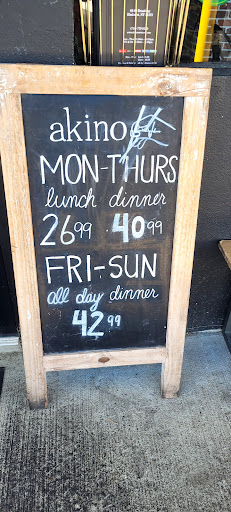 akino
MON-THURS
lunch dinner
26.99 40.99
FRI-SUN
all day dinner
42.99